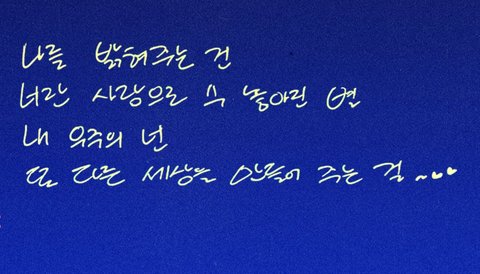 나를 밝혀주는 건
너란 사랑으로 수 놓아린 별
내 우주의 넌
또 다른 세상을 만들어 주는 걸 ~♥♥